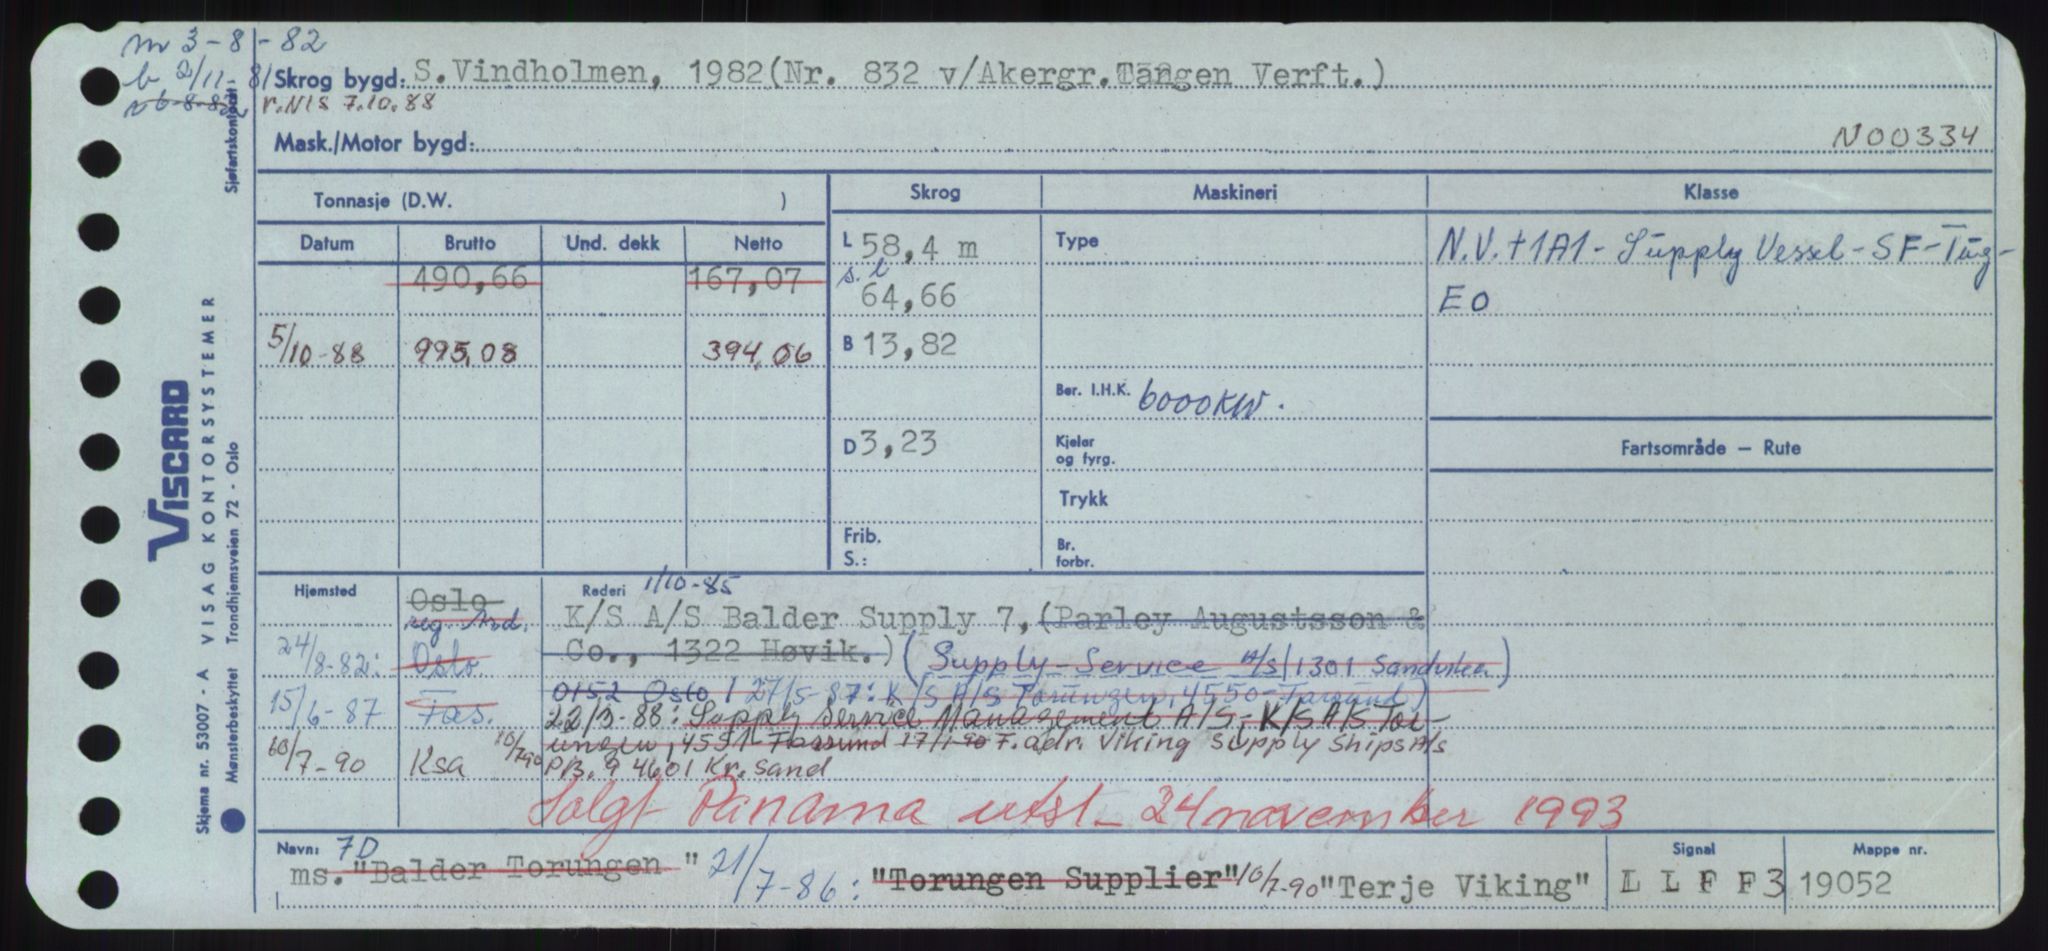 m 3-8-82
b 2/11-81 Skrog bygd: S.Vindholmen, 1982(Nr. 832 v/Akergr.Tangen Verft.)
6-8-82 r.NIS 7.10.88
Mask./Motor bygd: N00334
Sjøfartskontoret
Tonnasje (D.W. ) Skrog Maskineri Klasse
Datum Brutto Und. dekk Netto L 58,4 m Type N.V.+1A1- Supply Vessel-SF-Tug-
490,66 167,07 s.l 64,66 EO
5/10-88 995,08 394,06 B 13,82
Ber. I.H.K. 6000KW.
D 3,23 Kjeler og fyrg. Fartsområde — Rute
Trykk
Frib. S.: Br. forbr.
VISCARD
VISAG KONTORSYSTEMER
Trondhjemsveien 72 - Oslo
Skjema nr. 53007 - A
Mønsterbeskyttet
Hjemsted Oslo Rederi 1/10-85
reg. And. K/S A/S Balder Supply 7, (Parley Augustsson &
24/8-82: Oslo. Co., 1322 Høvik.) (Supply-Service A/S, 1301 Sandvika)
0152 Oslo, 27/5-87: K/S A/S Torungen, 4550-Farsund)
15/6-87 Fas. 22/3-88: Supply Service Management A/S, K/S A/S Tor-
ungen, 4551 Farsund 17/1-90 F. adr. Viking Supply Ships A/s
10/7-90 Ksa 10/7-90 P.B. 9 4601 Kr. sand
Solgt Panama utst- 24 november 1993
Navn: 7D Signal Mappe nr.
ms. "Balder Torungen " 21/7-86: "Torungen Supplier" 10/7-90 "Terje Viking" L L F F 3 19052